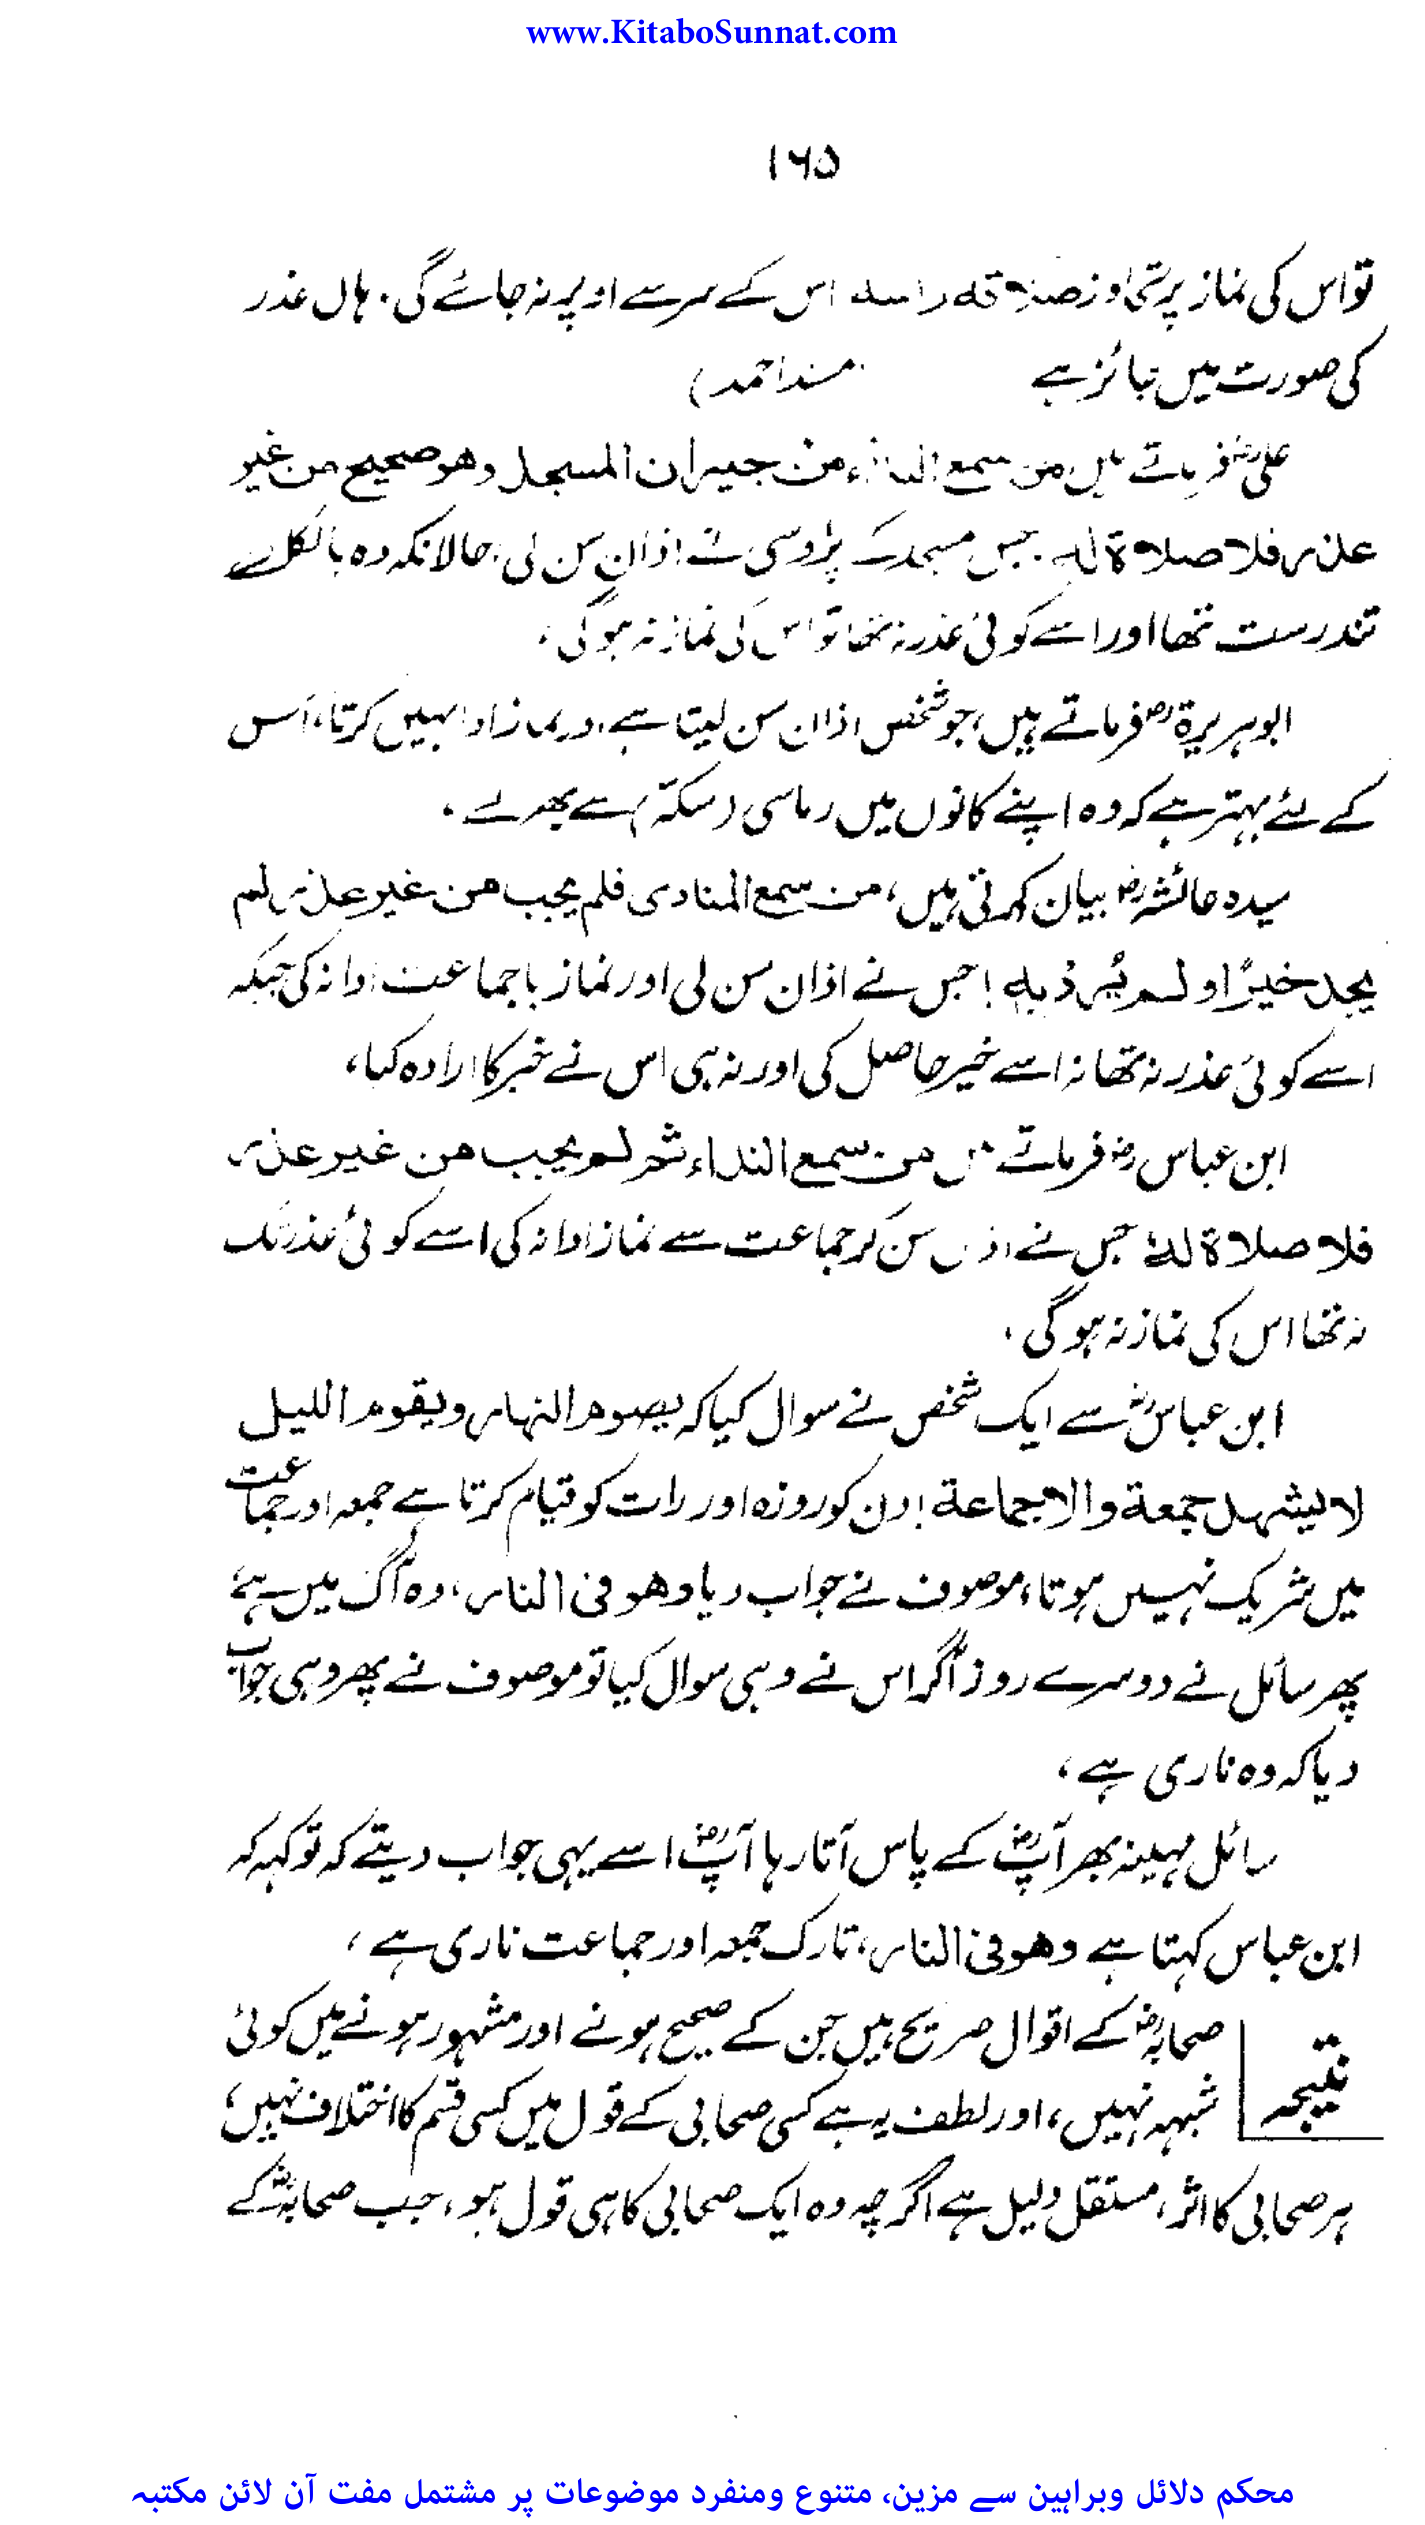 www.KitaboSunnat.com
۱۶۵
تو اس کی نماز اس کے سر سے اوپر نہ جائے گی۔ ہاں عذر
کی صورت میں جائز ہے مسند احمد)
علیؓ فرماتے ہیں من سمع النداء من جیران المسجد وھو صحیح من غیر
عذر فلا صلاۃ لہ۔ جس مسجد کے پڑوسی نے اذان سن لی، حالانکہ وہ بالکل
تندرست تھا اور اسے کوئی عذر نہ تھا تو اس کی نماز نہ ہو گی۔
ابوہریرۃؓ فرماتے ہیں، جو شخص اذان سن لیتا ہے، اور نماز ادا نہیں کرتا، اس
کے لئے بہتر ہے کہ وہ اپنے کانوں میں (سکتہ) سے بھر لے۔
سیدہ عائشہؓ بیان کرتی ہیں، من سمع المنادی فلم یجب من غیر عذر لم
یجد خیرًا ولم یُرد بہ! جس نے اذان سن لی اور نماز باجماعت ادا نہ کی جبکہ
اسے کوئی عذر نہ تھا نہ اسے خیر حاصل کی اور نہ ہی اس نے خیر کا ارادہ کیا،
ابن عباسؓ فرماتے ہیں من سمع النداء ثم لم یجب من غیر عذر
فلا صلاۃ لہٗ جس نے اذاں سن کر جماعت سے نماز ادا نہ کی اسے کوئی عذر تک
نہ تھا اس کی نماز نہ ہو گی۔
ابن عباسؓ سے ایک شخص نے سوال کیا کہ یصوم النھار ویقوم اللیل
لا یشھد جمعة والا جماعة! دن کو روزہ اور رات کو قیام کرتا ہے جمعہ اور جماعت
میں شریک نہیں ہوتا، موصوف نے جواب دیا وھو فی النار، وہ آگ میں ہے
پھر سائل نے دوسرے روز آکر اس نے وہی سوال کیا تو موصوف نے پھر وہی جواب
دیا کہ وہ ناری ہے،
سائل مہینہ بھر آپؓ کے پاس آتا رہا آپؓ اسے یہی جواب دیتے کہ تو کہہ کہ
ابن عباس کہتا ہے وھو فی النار، تارک جمعہ اور جماعت ناری ہے،
نتیجہ صحابہؓ کے اقوال صریح ہیں جن کے صحیح ہونے اور مشہور ہونے میں کوئی
شبہہ نہیں، اور لطف یہ ہے کسی صحابی کے قول میں کسی قسم کا اختلاف نہیں،
ہر صحابی کا اثر، مستقل دلیل ہے اگرچہ وہ ایک صحابی کا ہی قول ہو، جب صحابہؓ کے
محکم دلائل وبراہین سے مزین، متنوع ومنفرد موضوعات پر مشتمل مفت آن لائن مکتبہ